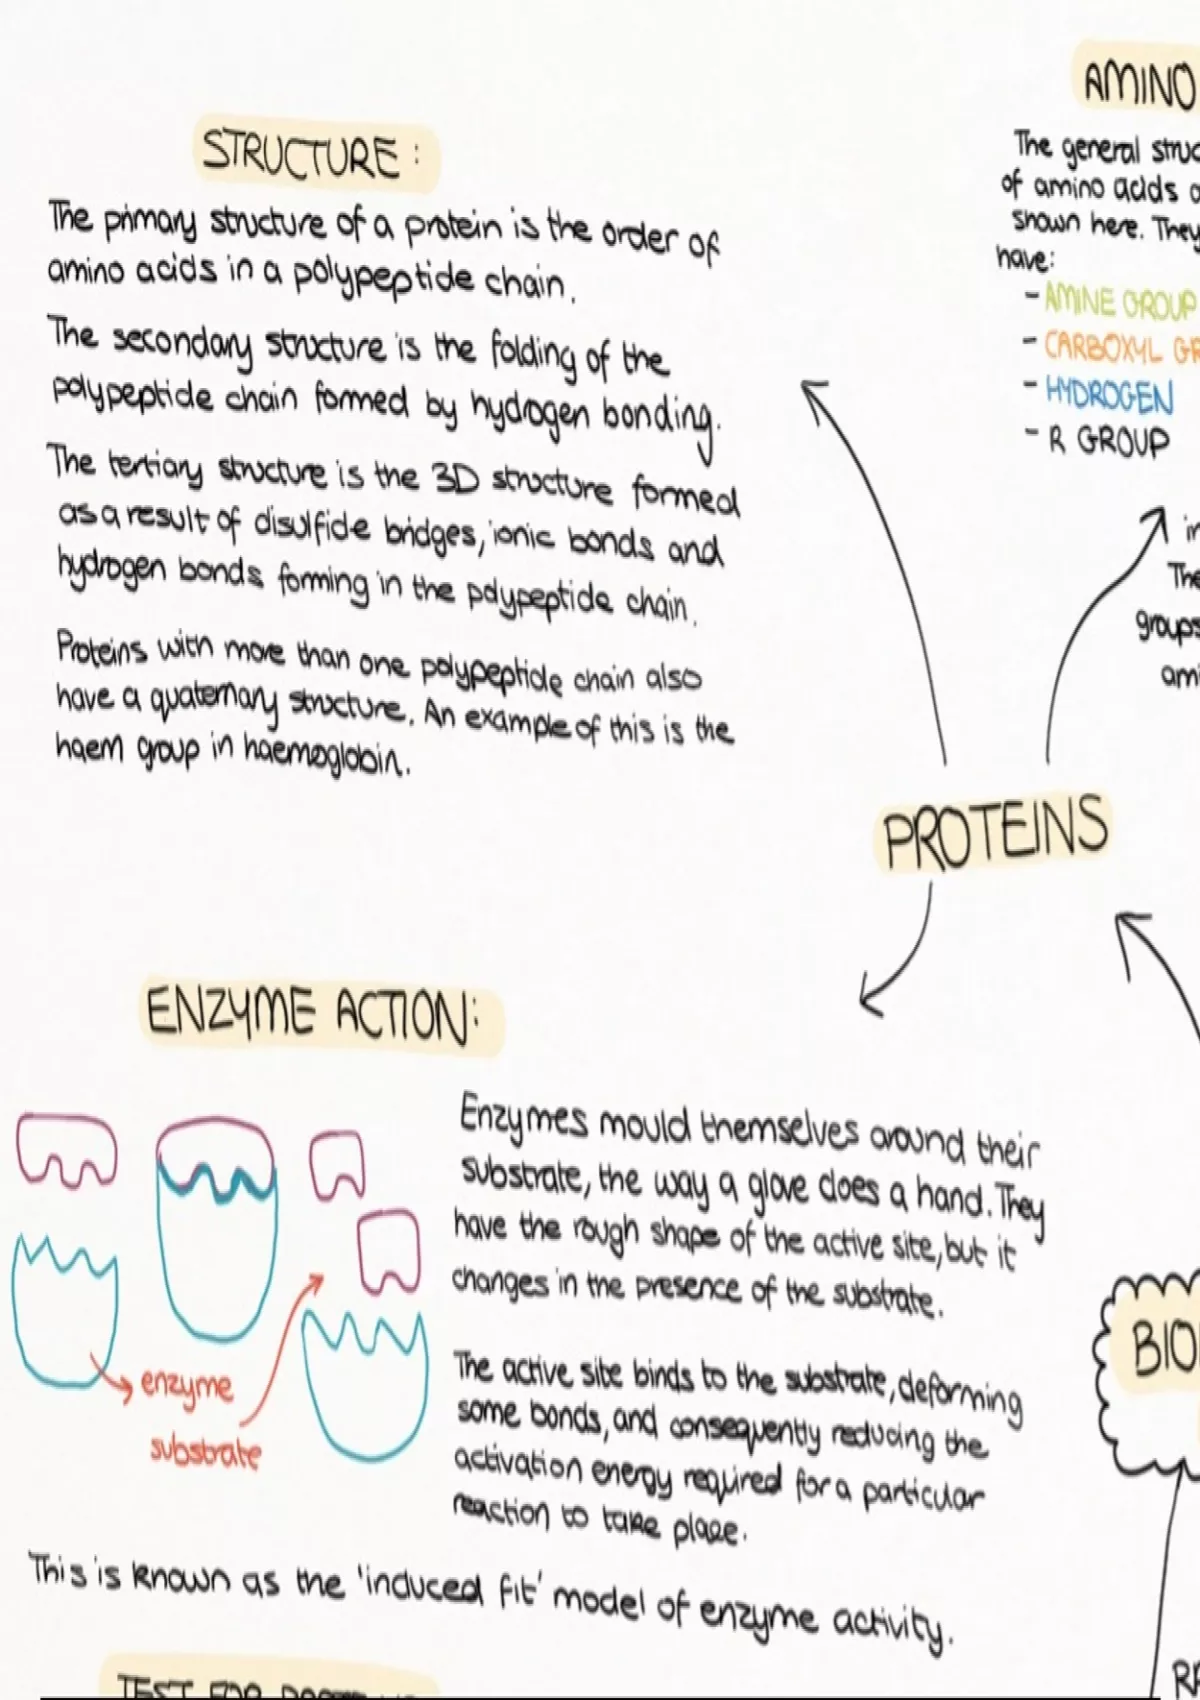 STRUCTURE:
The primary structure of a protein is the order of
amino acids in a polypeptide chain.
The secondary structure is the folding of the
polypeptide chain formed by hydrogen bonding.
The tertiary structure is the 3D structure formed
as a result of disulfide bridges, ionic bonds and
hydrogen bonds forming in the polypeptide chain.
Proteins with more than one polypeptide chain also
have a quaternary structure. An example of this is the
haem group in haemoglobin.
AMINO
The general struc
of amino acids a
shown here. They
have:
- AMINE GROUP
- CARBOXYL GR
- HYDROGEN
- R GROUP
in
The
groups
ami
PROTEINS
ENZYME ACTION:
enzyme
substrate
Enzymes mould themselves around their
substrate, the way a glove does a hand. They
have the rough shape of the active site, but it
changes in the presence of the substrate.
The active site binds to the substrate, deforming
some bonds, and consequently reducing the
activation energy required for a particular
reaction to take place.
This is known as the 'induced fit' model of enzyme activity.
BIO
TEST FOR